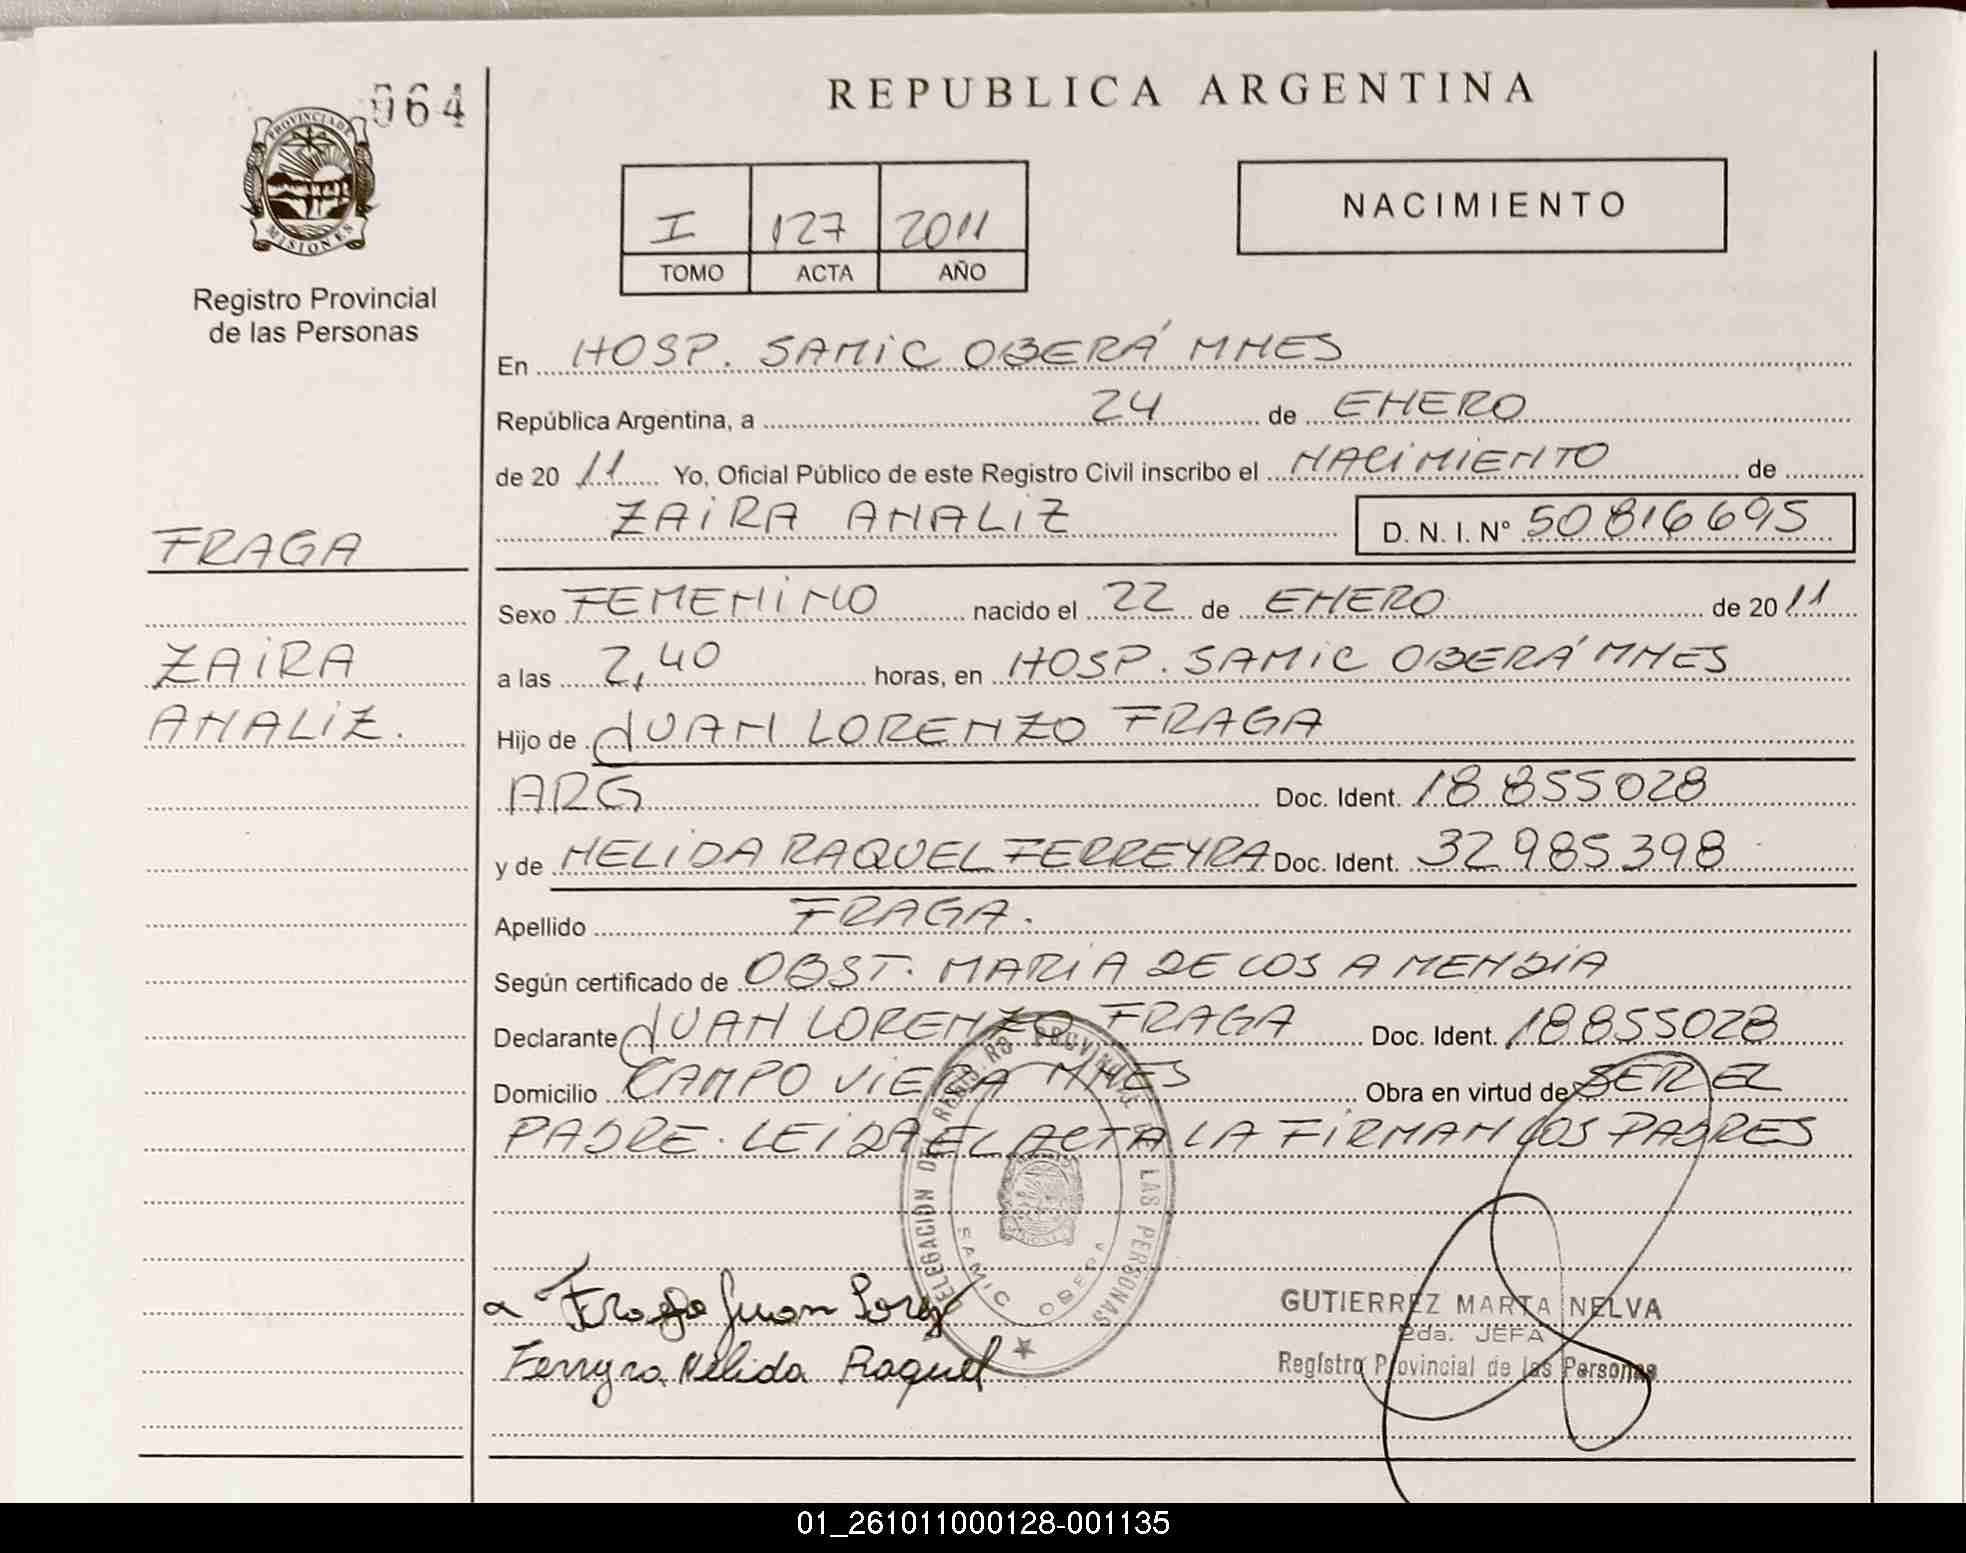 064
PROVINCIA DE
MISIONES
Registro Provincial
de las Personas
FRAGA
ZAIRA
ANALIZ.
REPUBLICA ARGENTINA
I 127 2011
TOMO ACTA AÑO
NACIMIENTO
En HOSP. SAMIC OBERÁ MNES
República Argentina, a 24 de ENERO
de 20 11 Yo, Oficial Público de este Registro Civil inscribo el NACIMIENTO de
ZAIRA ANALIZ D. N. I. N° 50816695
Sexo FEMENINO nacido el 22 de ENERO de 20 11
a las 2,40 horas, en HOSP. SAMIC OBERÁ MNES
Hijo de JUAN LORENZO FRAGA
ARG Doc. Ident. 18 855028
y de NELIDA RAQUEL FERREYRA Doc. Ident. 32985398
Apellido FRAGA.
Según certificado de OBST. MARIA DE LOS A MENDIA
Declarante JUAN LORENZO FRAGA Doc. Ident. 18855028
Domicilio CAMPO VIERA MNES Obra en virtud de SER EL
PADRE. LEIDA EL ACTA LA FIRMAN LOS PADRES
DELEGACION DEL REGISTRO PROVINCIAL DE LAS PERSONAS
SAMIC OBERA
Fraga Juan
Ferreyra Nelida Raquel
GUTIERREZ MARTA NELVA
2da. JEFA
Registro Provincial de las Personas
01_261011000128-001135